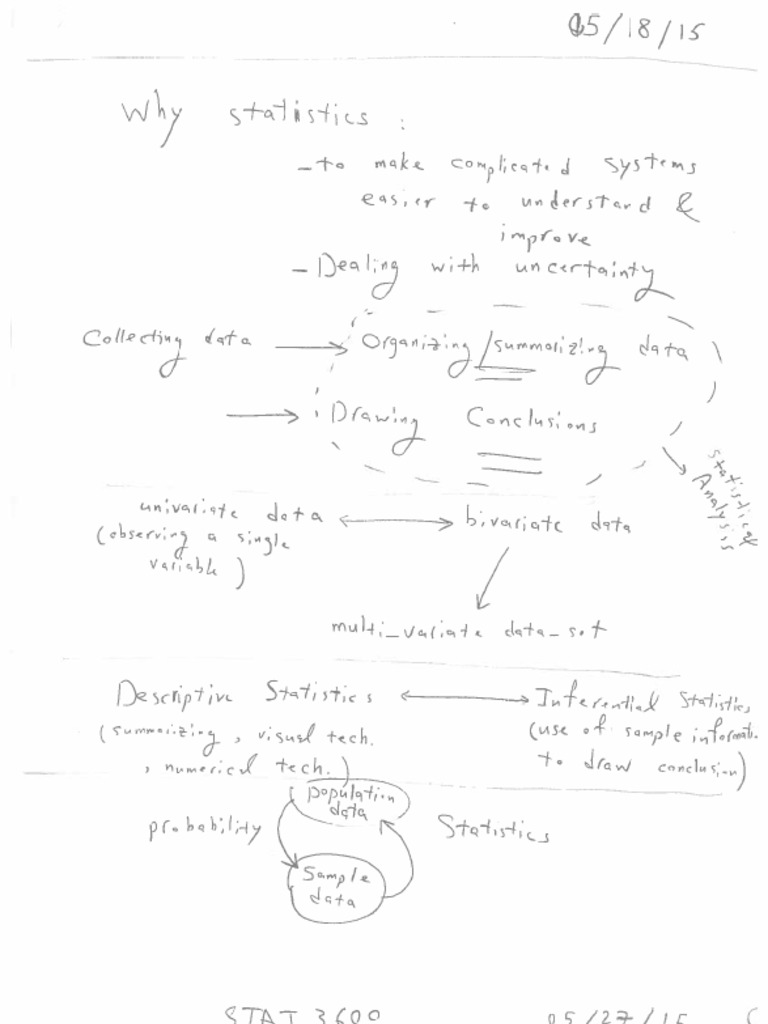 05/18/15
Why statistics :
- to make complicated systems
easier to understand &
improve
- Dealing with uncertainty
Collecting data → Organizing/summarizing data
→ Drawing Conclusions
Statistical
Analysis
univariate data ↔ bivariate data
(observing a single
variable)
multi_variate data_set
Descriptive Statistics ↔ Inferential Statistics
(summarizing, visual tech.
, numerical tech.)
(use of sample informati
to draw conclusion)
population
data
probability
Statistics
Sample
data
STAT 3600 05/27/15